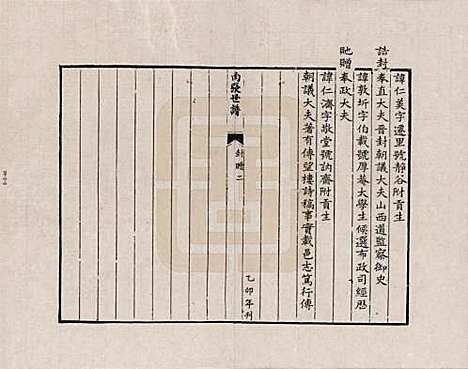 諱仁美字遷里號靜谷附貢生
誥封奉直大夫晉封朝議大夫山西道監察御史
諱敦圻字伯載號厚菴太學生候選布政司經歷
貤贈奉政大夫
諱仁濟字敬堂號訥齋附貢生
朝議大夫著有傳望樓詩稿事實載邑志篤行傳
南張世譜
封贈二
乙卯年刊